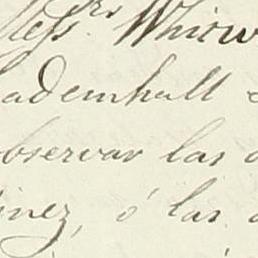 Mess.rs Whitw
ademhall
observar las
inez, ó las